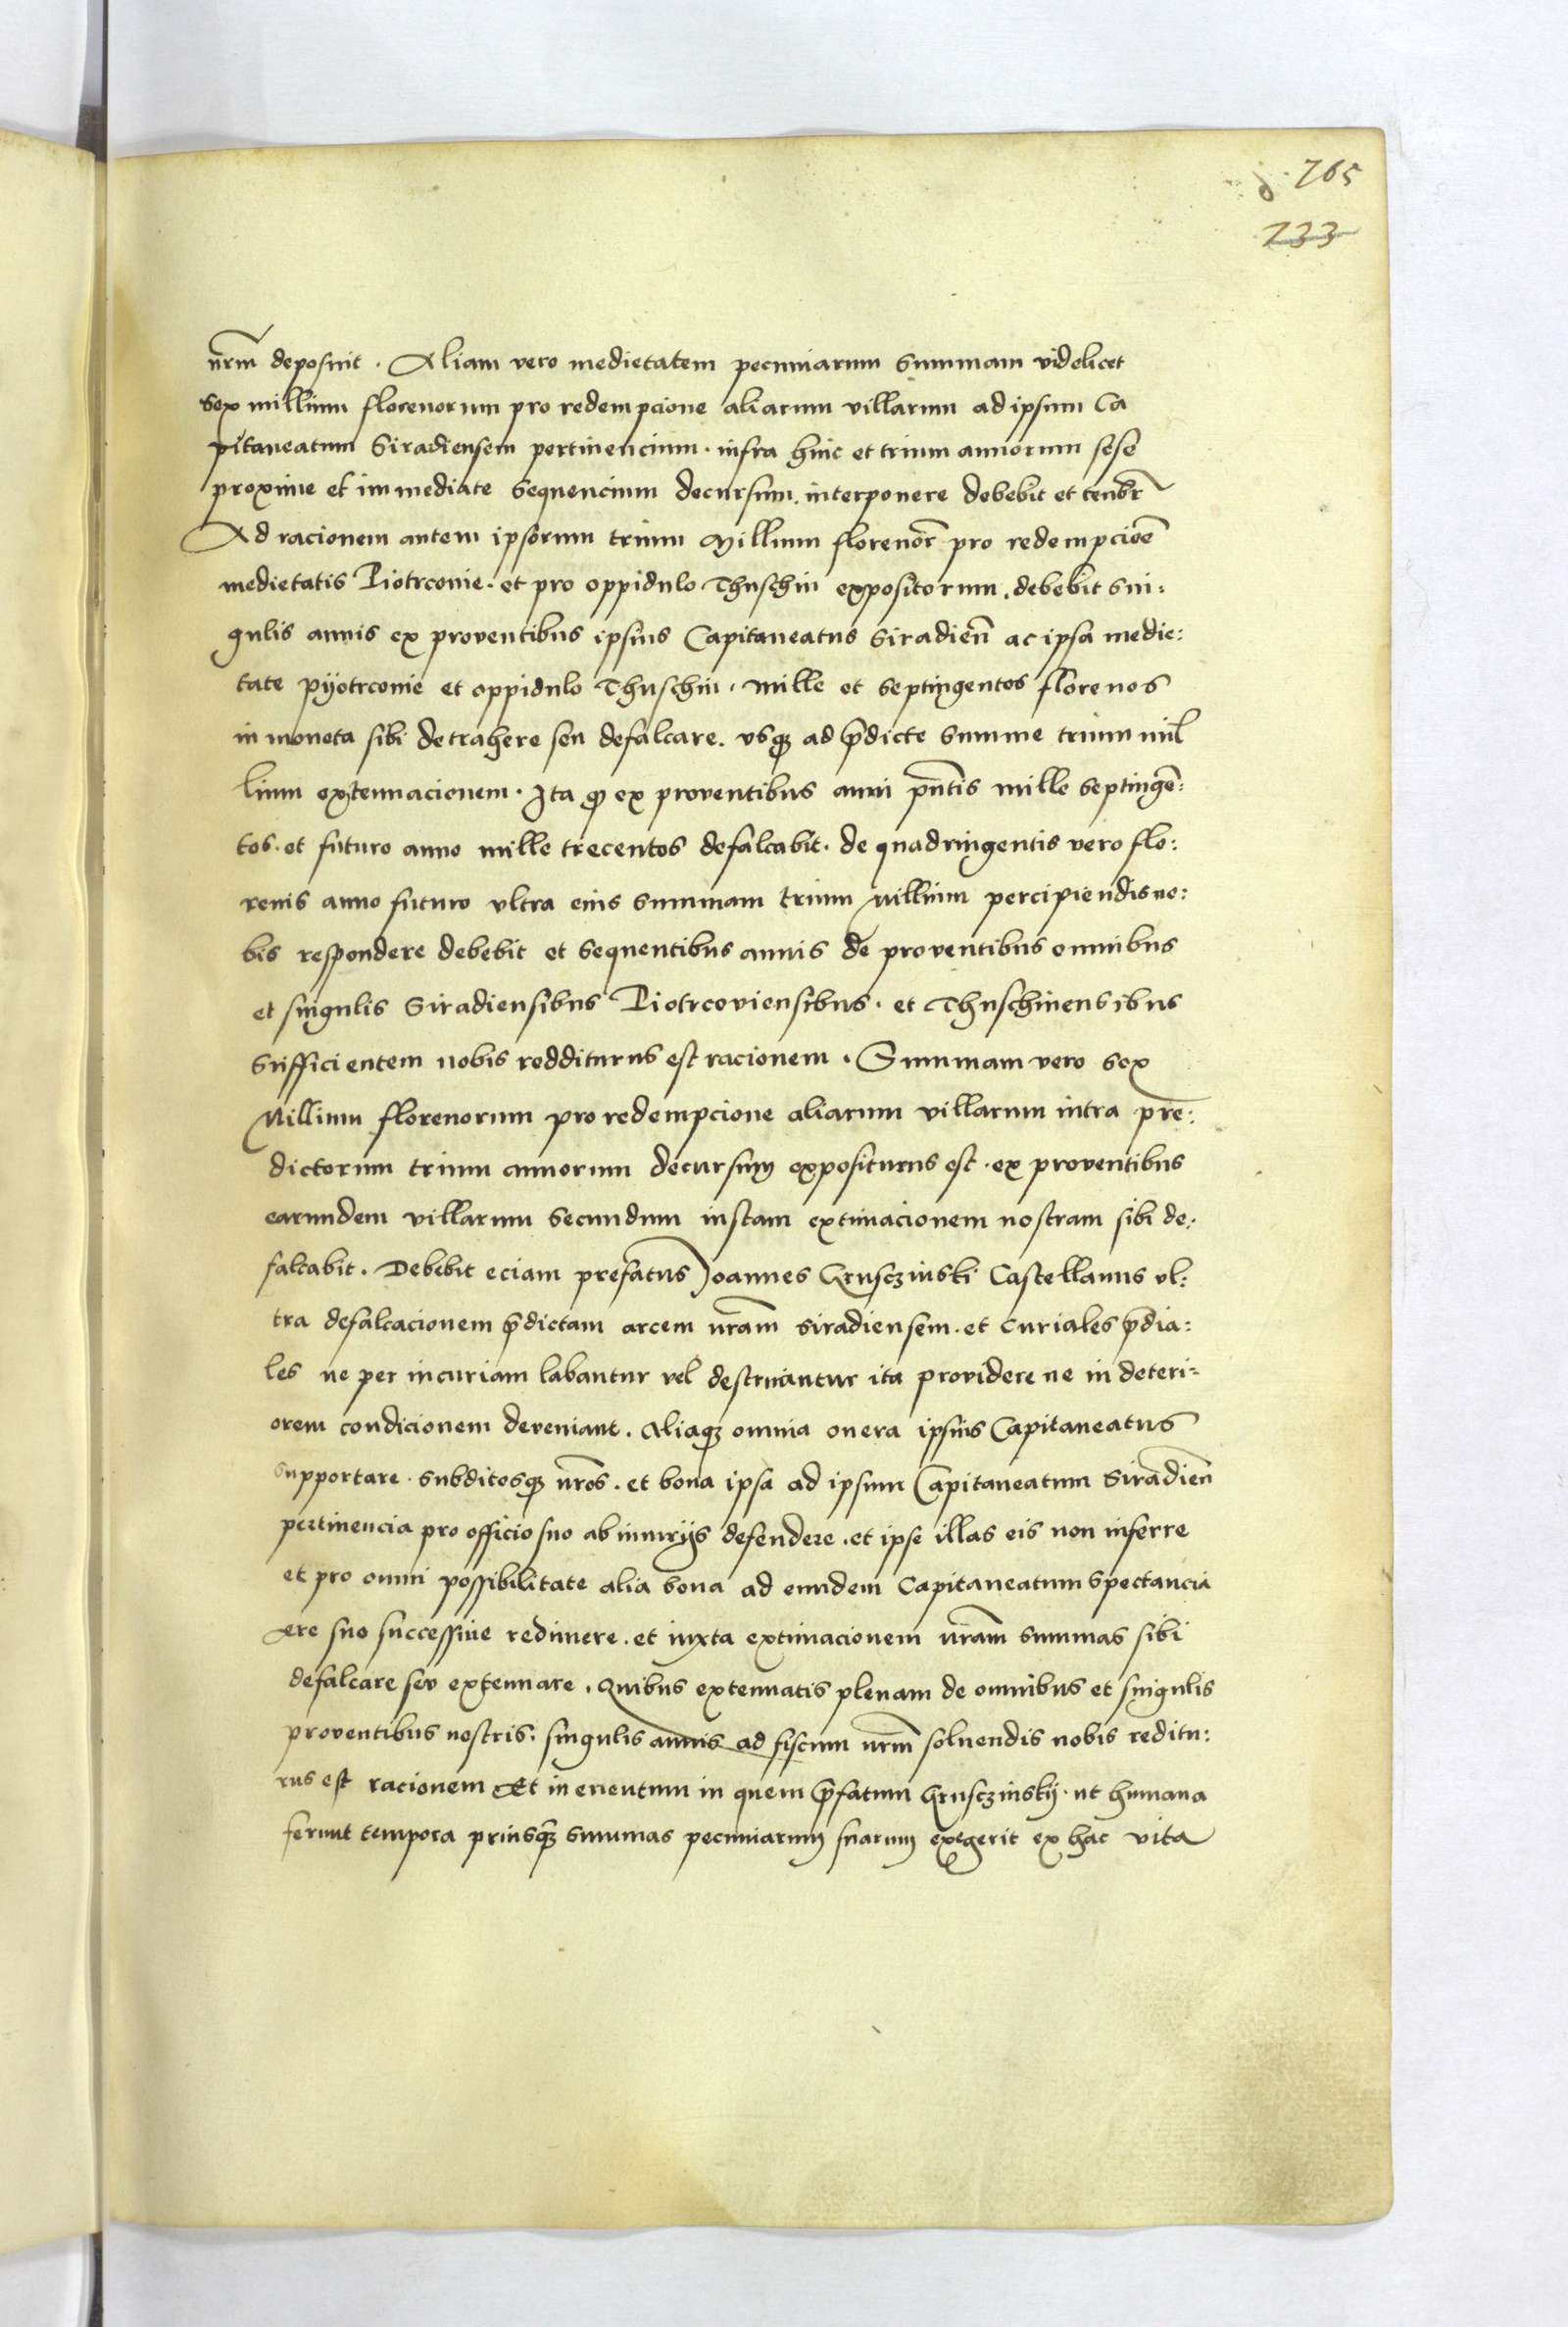 765
233
nr̃m deposuit . Aliam vero medietatem pecuniarum summam videlicet
sex millium florenorum pro redempcione aliarum villarum ad ipsum Ca
pitaneatum Siradiensem pertinencium . infra hinc et trium annorum sese
proxime et immediate sequencium decursum . interponere debebit et tenebr̃
Ad racionem autem ipsorum trium Millium florenor̃ pro redempcioẽ
medietatis Piotrconie . et pro oppidulo Thuschin expositorum . debebit sin:
gulis annis ex proventibus ipsius Capitaneatus Siradieñ ac ipsa medie:
tate pyotrconie et oppidulo Thuschin . mille et septingentos florenos
in moneta sibi detrahere seu defalcare . vsqꝫ ad p̃dicte summe trium mil
lium extenuacionem . Ita qͥ ex proventibus anni pñtis mille septingẽ:
tos . et futuro anno mille trecentos defalcabit . de quadringentis vero flo:
renis anno futuro vltra eius summam trium Millium percipiendis no:
bis respondere debebit et sequentibus annis de proventibus omnibus
et singulis Siradiensibus Piotrcoviensibus . et Thuschinensibus
sufficientem nobis redditurus est racionem . Summam vero sex
Millium florenorum pro redempcione aliarum villarum intra pre:
dictorum trium annorum decursum expositurus est . ex proventibus
earundem villarum secundum iustam extimacionem nostram sibi de:
falcabit . Debebit eciam prefatus Joannes Gruszinski Castellanus vl:
tra defalcacionem p̃dictam arcem nr̃am siradiensem . et Curiales p̃dia:
les ne per incuriam labantur vel destruantur ita providere ne in deteri-
orem condicionem deveniant . Aliaqꝫ omnia onera ipsius Capitaneatus
supportare . subditosqꝫ nr̃os . et bona ipsa ad ipsum Capitaneatum Siradieñ
pertinencia pro officio suo ab iniurijs defendere . et ipse illas eis non inferre
et pro omni possibilitate alia bona ad eundem Capitaneatum spectancia
ere suo successive redimere . et iuxta extimacionem nr̃am summas sibi
defalcare seu extenuare . Quibus extenuatis plenam de omnibus et singulis
proventibus nostris . singulis annis ad fiscum nr̃m soluendis nobis reditu:
rus est racionem Et in eventum in quem p̃fatum Gruszinskij . ut humana
ferunt tempora priusqꝫ summas pecuniarum suarum exegerit ex hac vita